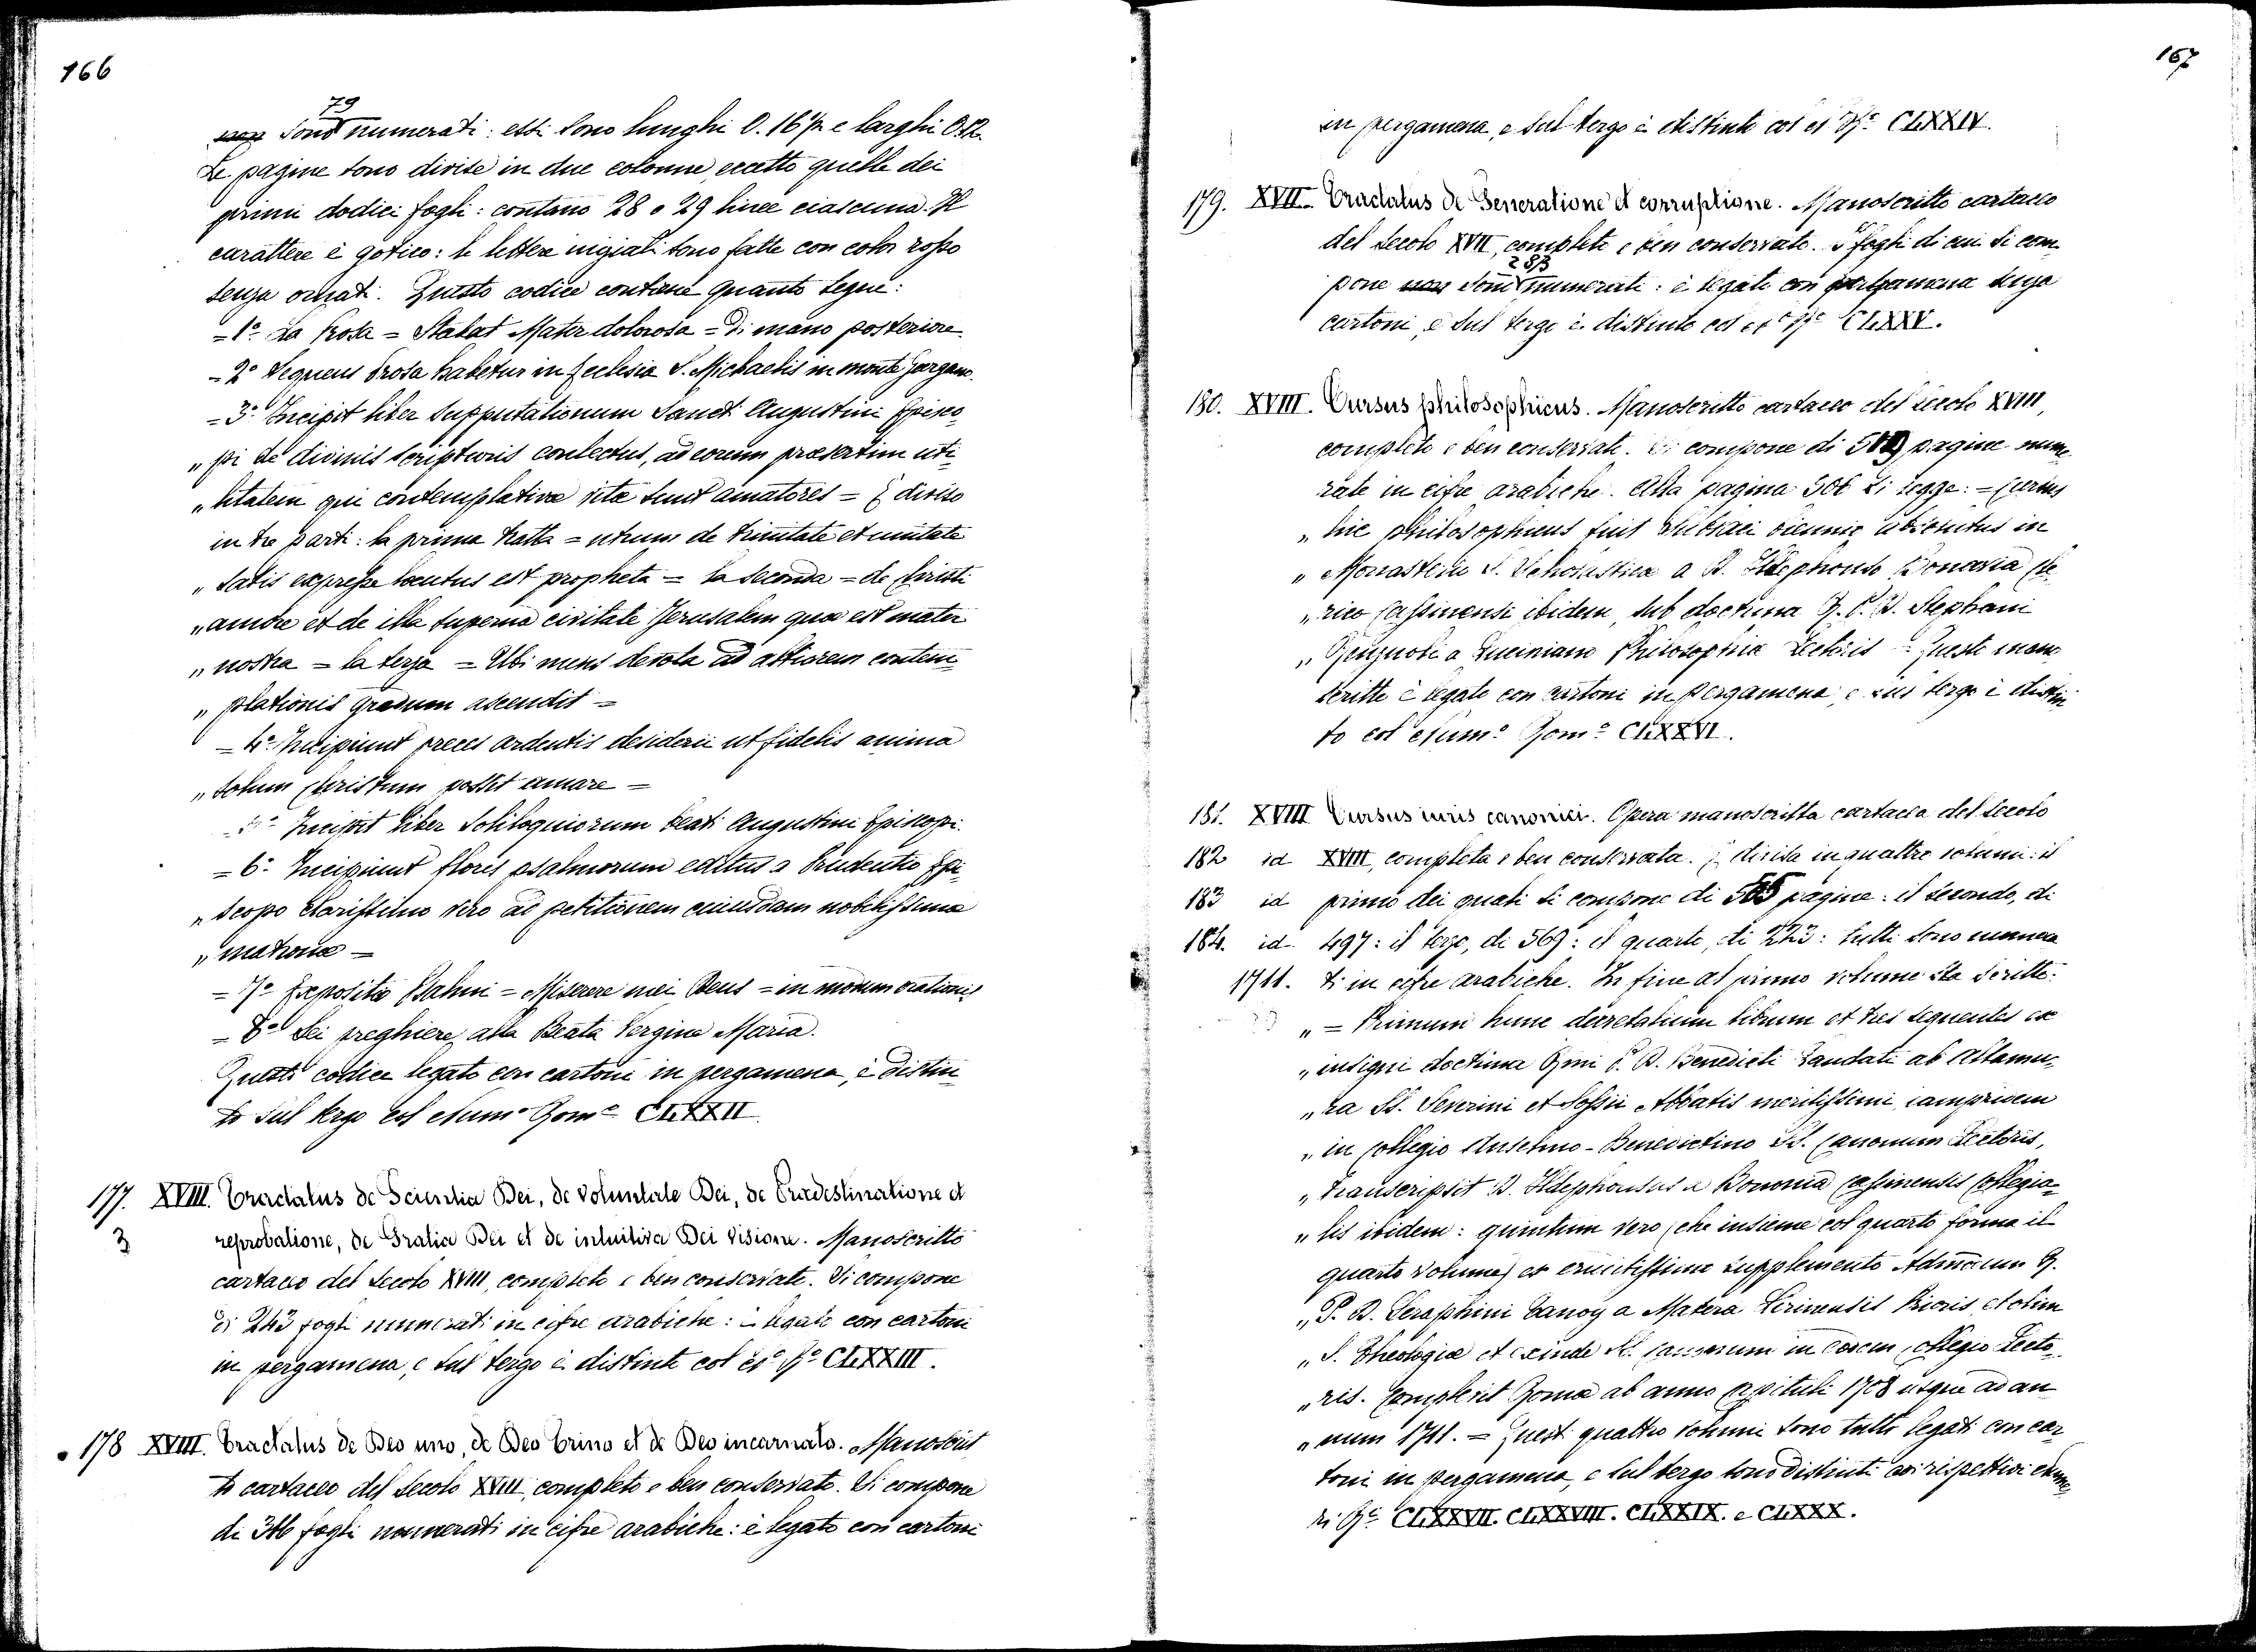 166
79
non sono numerati: essi sono lunghi 0. 16 ½ e larghi 0.12.
Le pagine sono divise in due colonne, eccetto quelle dei
primi dodici fogli: contano 28 o 29 linee ciascuna. Il
carattere è gotico: le lettere iniziali sono fatte con color rosso
senza ornati. Questo codice contiene quanto segue:
= 1º La Prosa = Stabat Mater dolorosa = di mano posteriore.
= 2º Sequens Prosa habetur in Ecclesia S. Michaelis in monte Gargano.
= 3º Incipit liber supputationum Sancti Augustini Episco
„ pi de divinis scripturis conlectus, ad eorum præsertim uti
„ litatem qui contemplativæ vitæ sunt amatores = È diviso
in tre parti: la prima tratta = utrum de trinitate et unitate
„ satis expresse locutus est propheta = la seconda = de Christi
„ amore et de illa superna civitate Jerusalem quæ est mater
„ nostra = la terza = Ubi mens devota ad altiorem contem
„ plationis gradum ascendit =
= 4º Incipiunt preces ardentis desiderii ut fidelis anima
„ totum Christum possit amare =
= 5º Incipit liber Soliloquiorum beati Augustini Episcopi.
= 6º Incipiunt flores psalmorum editus a Prudentio Epi
„ scopo clarissimo viro ad petitionem cuiusdam nobilissimæ
„ matronæ =
= 7º Expositio Psalmi = Miserere mei Deus = in modum orationis
= 8º Sei preghiere alla Beata Vergine Maria.
Questo codice legato con cartoni in pergamena, è distin
to sul tergo col Numº Romº CLXXII
177. XVIII. Tractatus de Scientia Dei, de Voluntate Dei, de Prædestinatione et
3 reprobatione, de Gratia Dei et de intuitiva Dei Visione. Manoscritto
cartaceo del secolo XVIII, completo e ben conservato. Si compone
di 243 fogli numerati in cifre arabiche: è legato con cartoni
in pergamena, e sul tergo è distinto col Nº Rº CLXXIII.
178 XVIII. Tractatus de Deo uno, de Deo Trino et de Deo incarnato. Manoscrit
to cartaceo del secolo XVIII, completo e ben conservato. Si compone
di 316 fogli numerati in cifre arabiche: è legato con cartoni
167
in pergamena, e sul tergo è distinto col Nº Rº CLXXIV.
179. XVII. Tractatus de Generatione et corruptione. Manoscritto cartaceo
del secolo XVII, completo e ben conservato. I fogli di cui si com
283
pone non sono numerati: è legato con pergamena senza
cartoni, e sul tergo è distinto col Nº Rº CLXXV.
180. XVIII. Cursus philosophicus. Manoscritto cartaceo del secolo XVIII,
completo e ben conservato. Si compone di pagine nume
rate in cifre arabiche. Alla pagina 506 si legge: = Cursus
„ hic philosophicus fuit Sublaci biennio absolutus in
„ Monasterio S. Scholasticæ a D. Ildephonso Bononia Cle
„ rico Cassinensi ibidem, sub doctrina R. P. D. Stephani
„ a Luciniano Philosophiæ Lectoris = Questo mano
scritto è legato con cartoni in pergamena, e sul tergo è distin
to col Numº Romº CLXXVI.
181. XVIII Cursus iuris canonici. Opera manoscritta cartacea del secolo
182 id XVIII, completa e ben conservata. È divisa in quattro volumi: il
183 id primo dei quali si compone di 505 pagine: il secondo, di
184. id. 497: il terzo, di 569: il quarto, di 223: tutti sono numera
1711. ti in cifre arabiche. In fine al primo volume sta scritto:
„ = Primum hunc decretalium librum et tres sequentes ex
„ insigni doctrina Rmi P. D. Benedicti Laudati ab Altamu
„ ra SS. Severini et Sossii Abbatis meritissimi, iampridem
„ in Collegio Anselmo-Benedictino SS. Canonum Lectoris,
„ transcripsit D. Ildephonsus a Bononia Cassinensis Collegia
„ lis ibidem: quintum vero (che insieme col quarto forma il
quarto volume) ex eruditissimo supplemento Admodum R.
„ P. D. Seraphini Tanog a Matera Lirinensis Prioris, et olim
„ S. Theologiæ et exinde SS. Canonum in eodem Collegio Lecto
„ ris. Complevit Romæ ab anno Capituli 1708 usque ad an
„ num 1711. = Questi quattro volumi sono tutti legati con car
toni in pergamena, e sul tergo sono distinti coi rispettivi Nume
ri Rº CLXXVII. CLXXVIII. CLXXIX. e CLXXX.